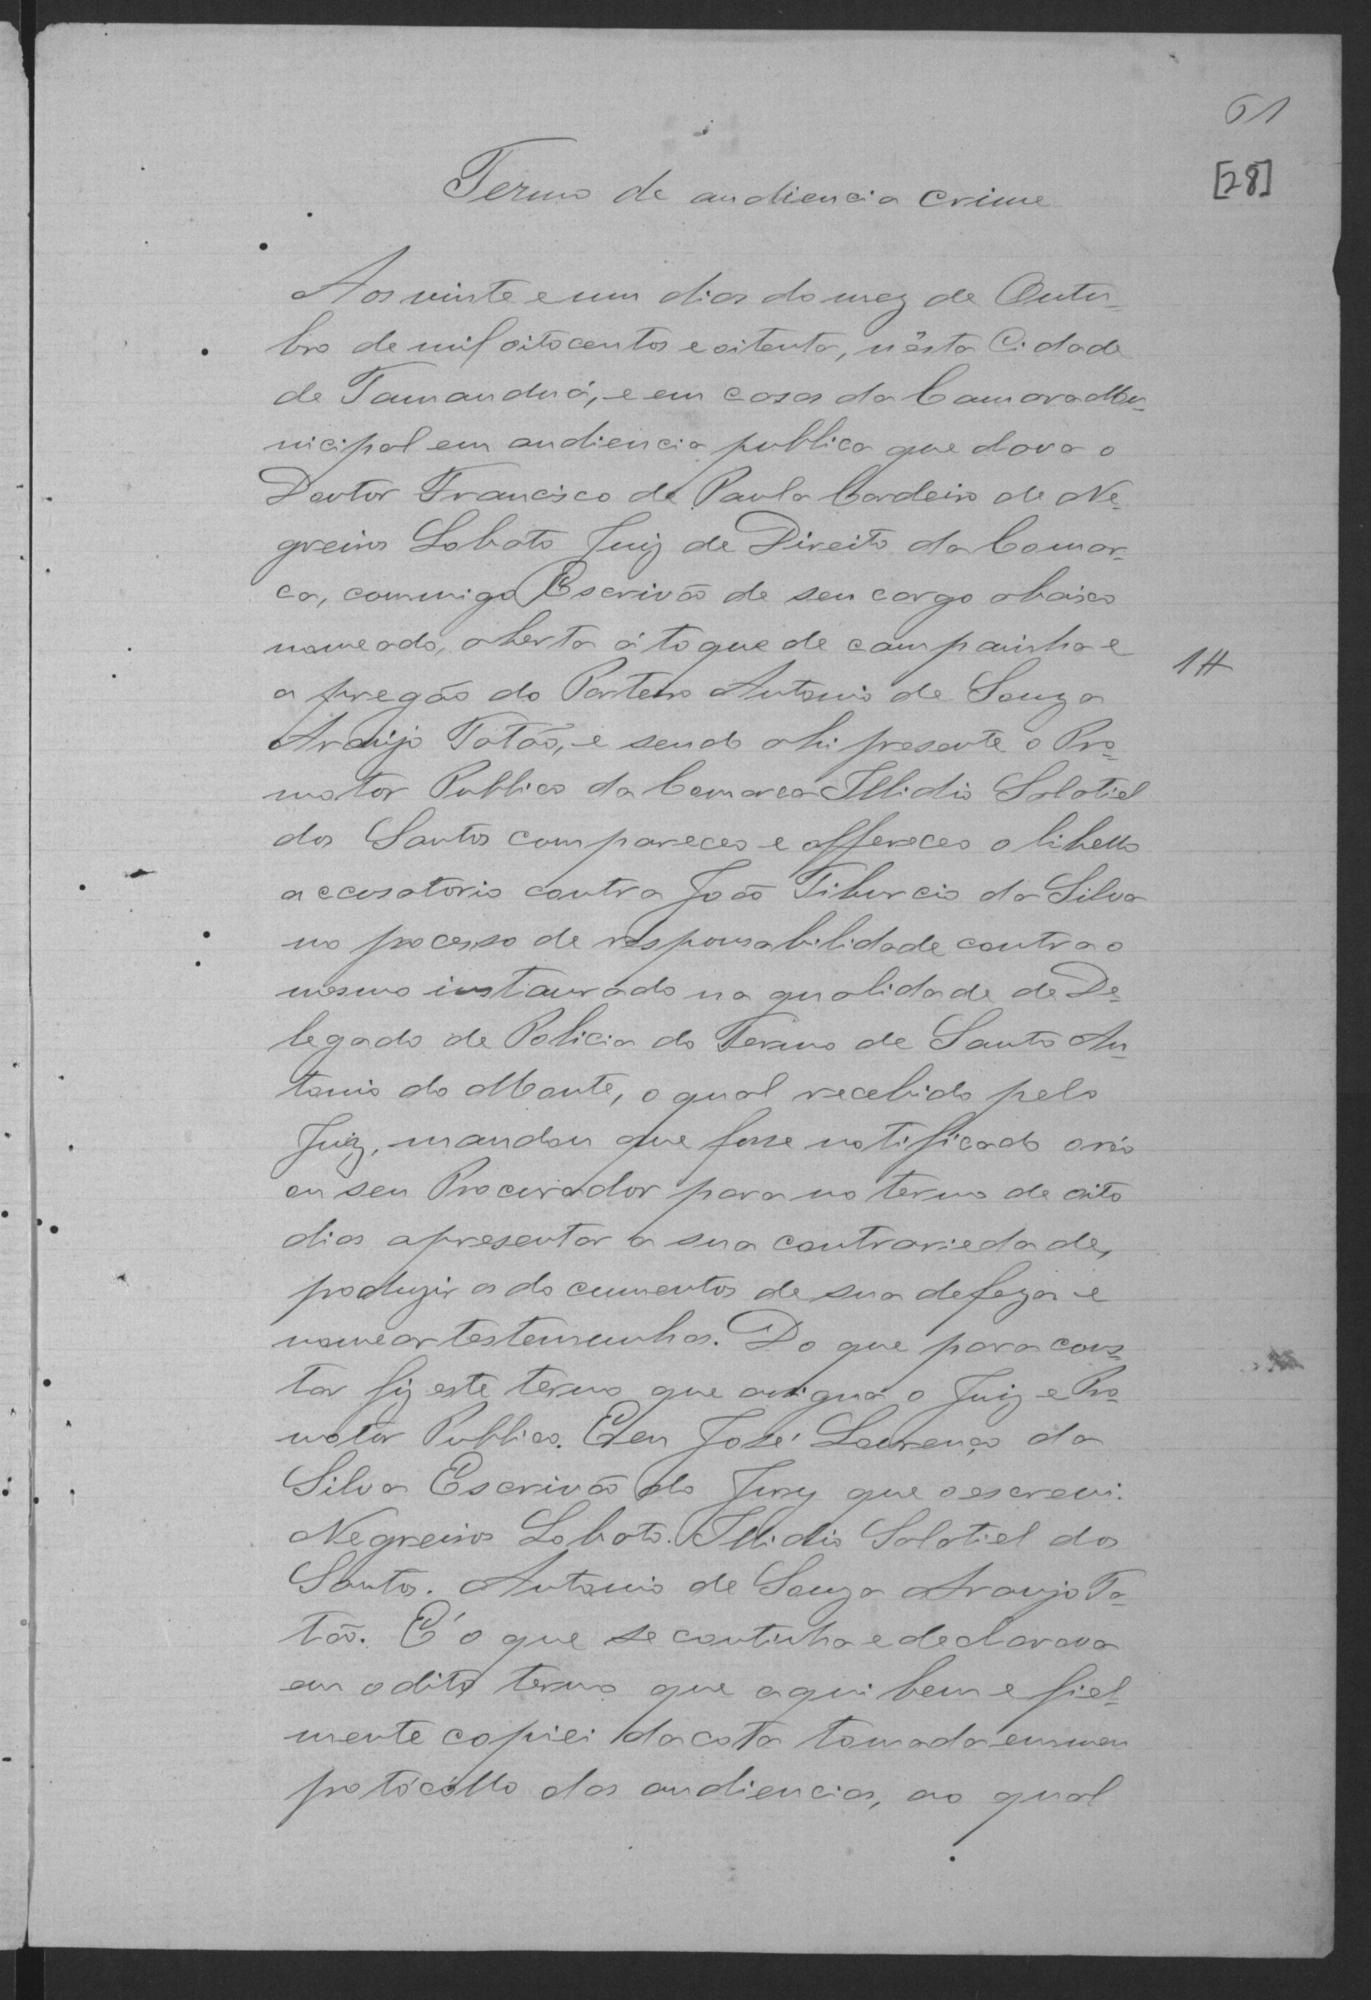 61
[28]
Termo de audiencia crime
Aos vinte e um dias do mez de Outu-
bro de mil oitocentos e oitenta, n'esta Cidade
de Tamanduá, e em casas da Camara Mu-
nicipal em audiencia publica que dava o
Doutor Francisco de Paula Cordeiro de Ne-
greiros Lobato Juiz de Direito da Comar-
ca, commigo Escrivão de seu cargo abaixo
nomeado, aberta á toque de campainha e
a pregão do Porteiro Antonio de Souza
Araujo Tatão, e sendo ahi presente o Pro-
motor Publico da Comarca Illidio Salatiel
dos Santos compareceo e offereceo o libello
accusatorio contra João Tiburcio da Silva
no processo de responsabilidade contra o
mesmo instaurado na qualidade de De-
legado de Policia do Termo de Santo An-
tonio do Monte, o qual recebido pelo
Juiz, mandou que fosse notificado o réo
ou seu Procurador para no termo de oito
dias apresentar a sua contrariedade,
produzir os documentos de sua defeza e
nomear testemunhas. Do que para cons-
tar fiz este termo que assigna o Juiz e Pro-
motor Publico. Eu José Lourenço da
Silva Escrivão do Jury que o escrevi.
Negreiros Lobato. Illidio Salatiel dos
Santos. Antonio de Souza Araujo Ta-
tão. É o que se continha e declarava
em o dito termo que aqui bem e fiel-
mente copiei da cota tomada em meu
protócóllo das audiencias, ao qual